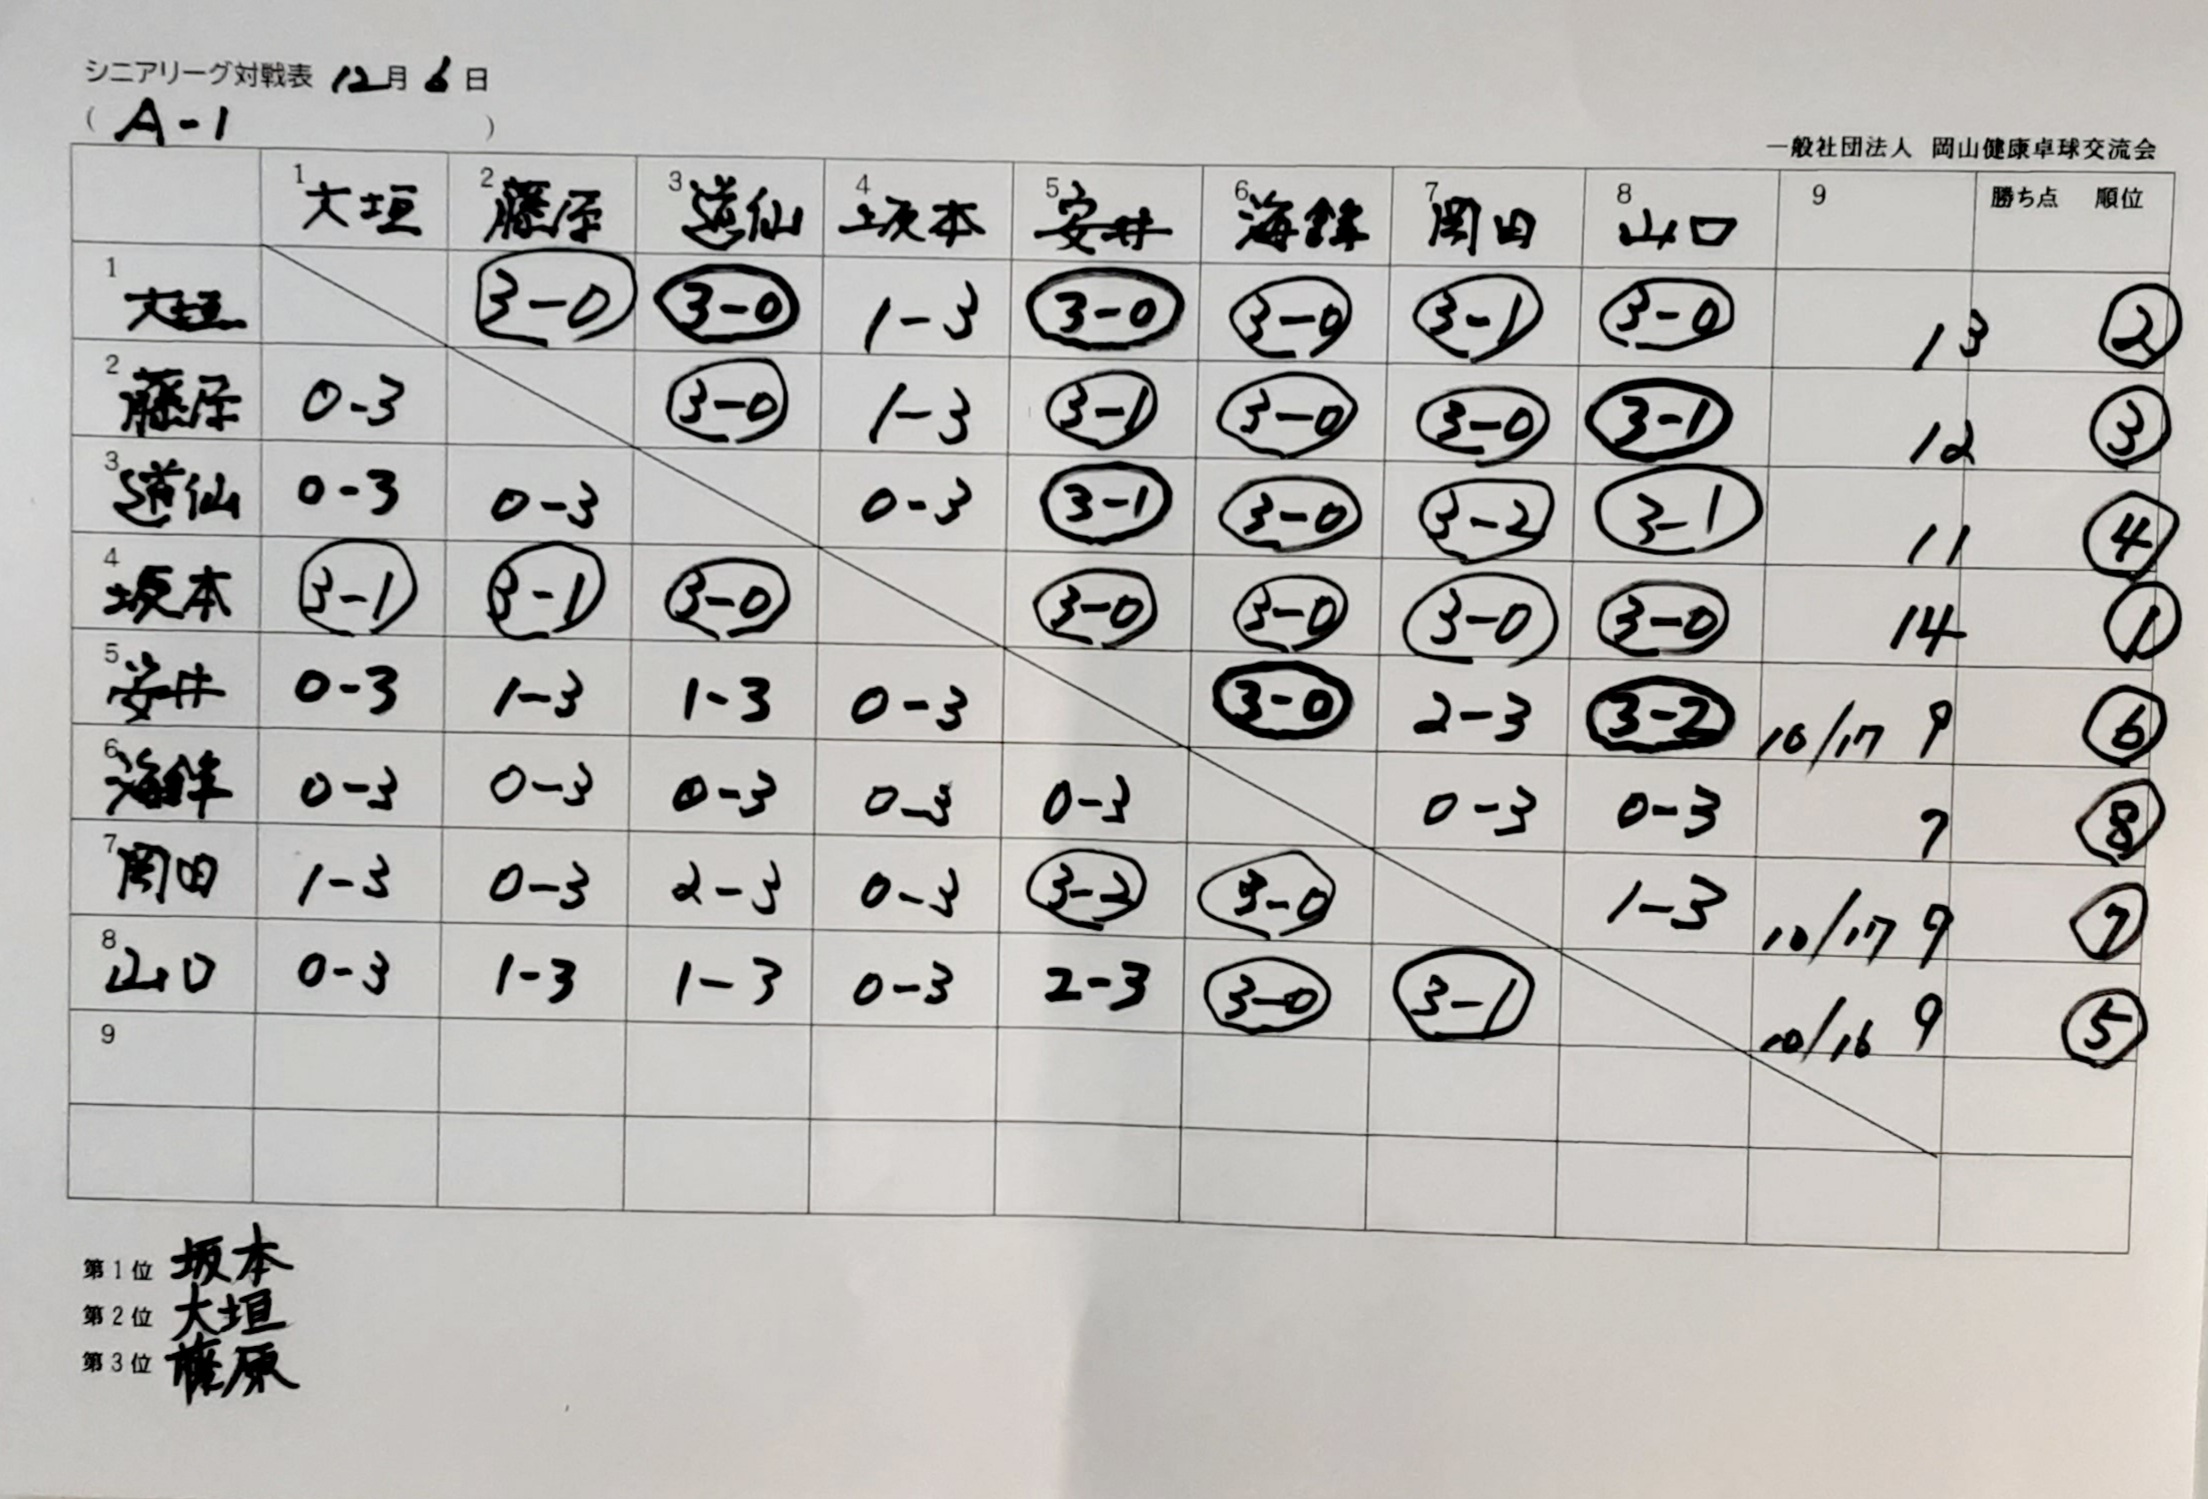 シニアリーグ対戦表 12月 6日
( A-1 )
一般社団法人 岡山健康卓球交流会
1 大垣 2 藤原 3 道仙 4 坂本 5 安井 6 海鉾 7 岡田 8 山口 9 勝ち点 順位
1 大垣 3-0 3-0 1-3 3-0 3-0 3-1 3-0 13 2
2 藤原 0-3 3-0 1-3 3-1 3-0 3-0 3-1 12 3
3 道仙 0-3 0-3 0-3 3-1 3-0 3-2 3-1 11 4
4 坂本 3-1 3-1 3-0 3-0 3-0 3-0 3-0 14 1
5 安井 0-3 1-3 1-3 0-3 3-0 2-3 3-2 10/17 9 6
6 海鉾 0-3 0-3 0-3 0-3 0-3 0-3 0-3 7 8
7 岡田 1-3 0-3 2-3 0-3 3-2 3-0 1-3 10/17 9 7
8 山口 0-3 1-3 1-3 0-3 2-3 3-0 3-1 10/16 9 5
9
第1位 坂本
第2位 大垣
第3位 藤原